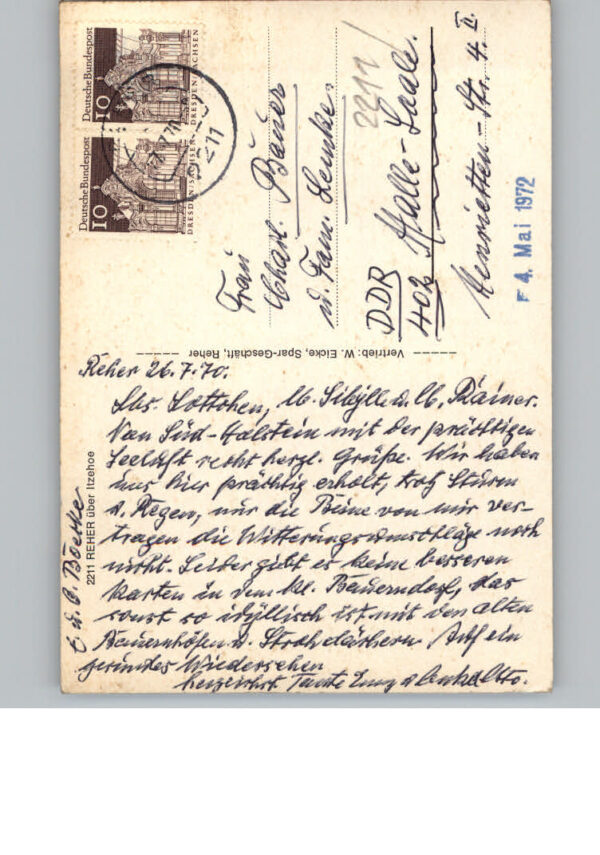 Deutsche Bundespost
10
DRESDEN/SACHSEN
Deutsche Bundespost
10
DRESDEN/SACHSEN
2211
Frau
Charl. Bauer
u. Fam. Lemke.
DDR
402 Halle-Saale.
Henrietten-Str. 4 II.
2211
4. Mai 1972
Vertrieb: W. Eicke, Spar-Geschäft, Reher
2211 REHER über Itzehoe
Reher 26.7.70.
Lbs. Lottchen, lb. Sibylle u. lb. Rainer.
Von Süd-Holstein mit der prächtigen
Seeluft recht herzl. Grüße. Wir haben
uns hier prächtig erholt, trotz Sturm
u. Regen, nur die Beine von mir ver-
tragen die Witterungsumschläge noch
nicht. Leider gibt es keine besseren
Karten in dem kl. Bauerndorf, das
sonst so idyllisch ist mit den alten
Bauernhöfen u. Strohdächern. Auf ein
gesundes Wiedersehen
herzlichst Tante u. Onkel Otto.
u. O. Boethe